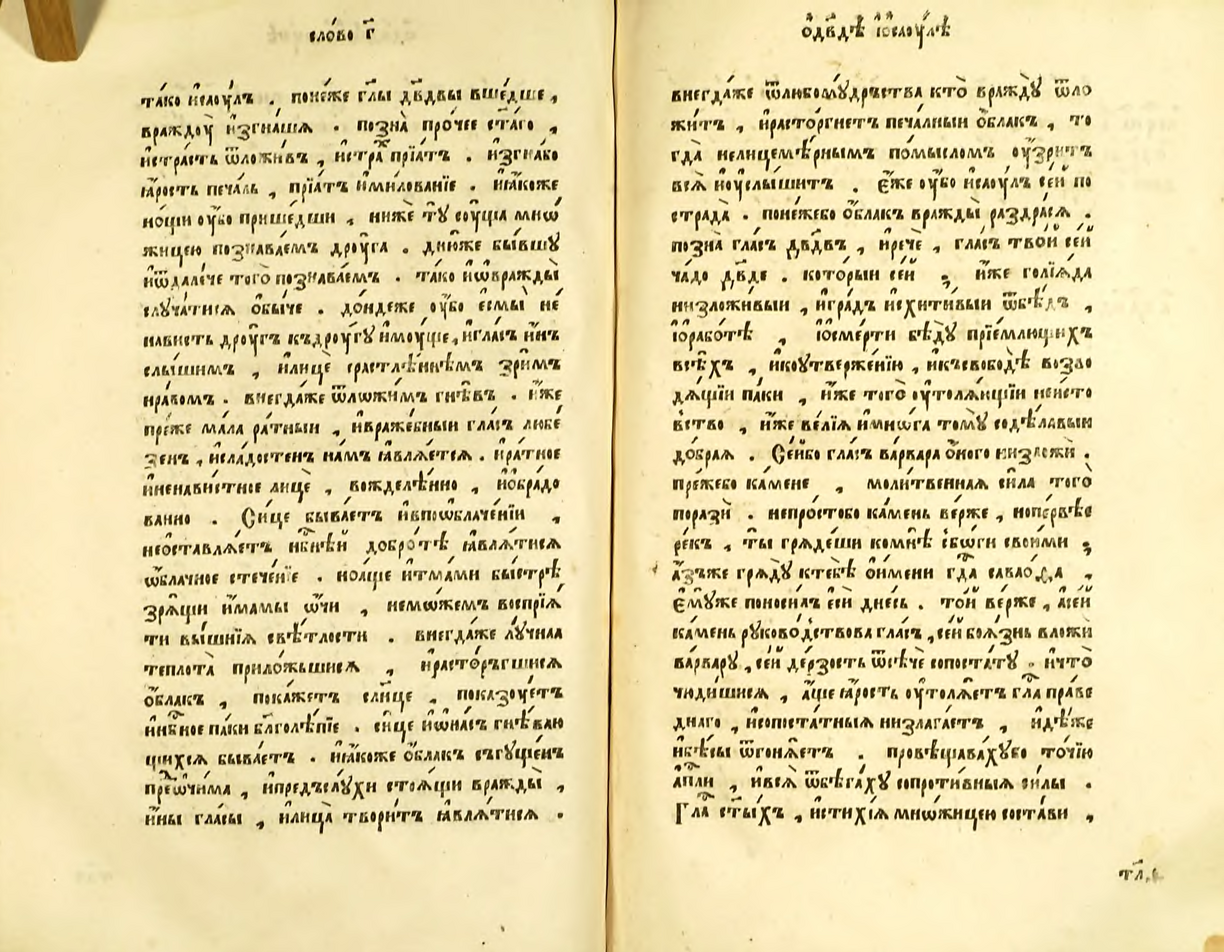 сло́во г҃
та́ко и҆саоу́лъ . поне́же гл҃ы дв҃двы вше́дше ,
враждоу̀ и҆згна́ша . позна̀ про́чее ст҃а́го ,
и҆стра́сть ѿложи́въ , и҆стра́х прїа́тъ . и҆згна́бо
ꙗ҆́рость печа́ль , прїа́тъ и҆милова́нїе . и҆ꙗ҆́коже
но́щи оу҆́бо прише́дши , нижѐ тꙋ̀ соу́ща мно́ѡ
жицею познава́емъ дроу́га . дню́же бы́вшꙋ
и҆ѿдале́че того̀ познава́емъ . та́ко и҆ѡ҆враждѣ̀
слꙋча́тисѧ ѻ҆бы́че . до́ндеже оу҆́бо е҆смы̀ не́
нависть дроу́гъ къдроу́гꙋ и҆мꙋ́ще , и҆гла́съ и҆́нъ
слы́шимъ , и҆лицѐ срастлѣ́ннѣмъ зри́мъ
нра́вомъ . внегда́же ѿло́жимъ гнѣ́въ . и҆́же
пре́же ма́ла ра́тныи , и҆вра́жебныи гла́съ любе́
зенъ , и҆сла́достенъ на́мъ ꙗ҆влѧ́етсѧ . и҆ра́тное
и҆ненави́стное лицѐ , вожделѣ́нно , и҆ѻ҆бра́до
ванно . Си́це быва́етъ и҆впоѡ҆блаче́нїи ,
неѻ҆ставлѧ́етъ нб҃нѣ́й добро́тѣ ꙗ҆влѧ́тисѧ
ѡ҆́блачное стече́нїе . но́аще и҆тма́ми бы́стрѣ
зрѧ́щи и҆́мамы ѻ҆́чи , немо́жемъ воспрїѧ́
ти вы́шнїѧ свѣ́тлости . внегда́же лꙋ́чнаа
теплота̀ приложьшисѧ , и҆расто́ргшисѧ
ѻ҆́блакъ , пока́жетъ сл҃нце , показоу́етъ
и҆нб҃ное па́ки бл҃голѣ́пїе . си́це и҆ѡ҆на́съ гнѣ́ваю
щихсѧ быва́етъ . и҆ꙗ҆́коже ѻ҆́блакъ сгꙋще́нъ
преѻ҆чи́ма , и҆предъслꙋ́хи стоѧ́щи враждѣ̀ ,
и҆́ны гла́сы , и҆ли́ца твори́тъ ꙗ҆влѧ́тисѧ .
ѻ҆дв҃дѣ и҆ѻ҆саоу́лѣ
внегда́же ѿлюбомꙋ́дрьства кто̀ враждꙋ̀ ѿло
жи́тъ , и҆расто́ргнетъ печа́лныи ѻ҆́блакъ , то
гда̀ нелицемѣ́рнымъ по́мысломъ оу҆́зритъ
всѧ̀ и҆оу҆слы́шитъ . є҆́же оу҆́бо и҆саоу́лъ се́й по
страда̀ . поне́жебо ѻ҆́блакъ враждѣ̀ раздра́сѧ .
позна̀ гла́съ дв҃двъ , и҆речѐ , гла́съ тво́й се́й
ча́до дв҃де . кото́рыи се́й ; и҆́же голїа́да
низложи́выи , и҆гра́дъ и҆схити́выи ѿбѣ́дъ ,
и҆ѻ҆рабо́тѣ , и҆ѻ҆сме́рти бѣдꙋ̀ прїе́млющихъ
всѣ́хъ , и҆коу҆твержѐнїю , и҆късвобо́дѣ возво
дѧ́щїи па́ки , и҆́же того̀ оу҆толѧ́ющїи неи́сто
вство , и҆́же ве́лїѧ и҆мно́га томꙋ̀ содѣ́лавыи
до́браѧ . Се́йбо гла́съ ва́рвара ѻ҆́ного низложѝ .
пре́жебо ка́мене , моли́твеннаѧ си́ла того̀
поразѝ . непро́стобо ка́мень ве́рже , нопе́рвѣе
ре́къ , ты̀ грѧде́ши комнѣ̀ збо́ги свои́ми ;
а҆́зъже грѧдꙋ̀ ктебѣ̀ ѻ҆и҆́мени гд҃а саваѻ́ѳа ,
Є҆мꙋ́же поноси́лъ є҆сѝ дне́сь . то́й ве́рже , а҆се́й
ка́мень рꙋково́дствова гла́съ , се́й боѧ́знь вложѝ
ва́рварꙋ , се́й де́рзость ѿсѣ́че сопоста́тꙋ . и҆что̀
чꙋди́шисѧ , а҆́ще ꙗ҆́рость оу҆толѧ́етъ гл҃а пра́ве
днаго , и҆сопоста́тныѧ низлага́етъ , и҆дѣ́же
и҆бѣ́сы ѿгонѧ́етъ . провѣщава́хꙋбо то́чїю
а҆пⷭ҇ли , и҆всѧ̀ ѿбѣга́хꙋ сопроти́вныѧ си́лы .
Гл҃а ст҃ы́хъ , и҆стихі́ѧ мно́жицею соста́ви ,